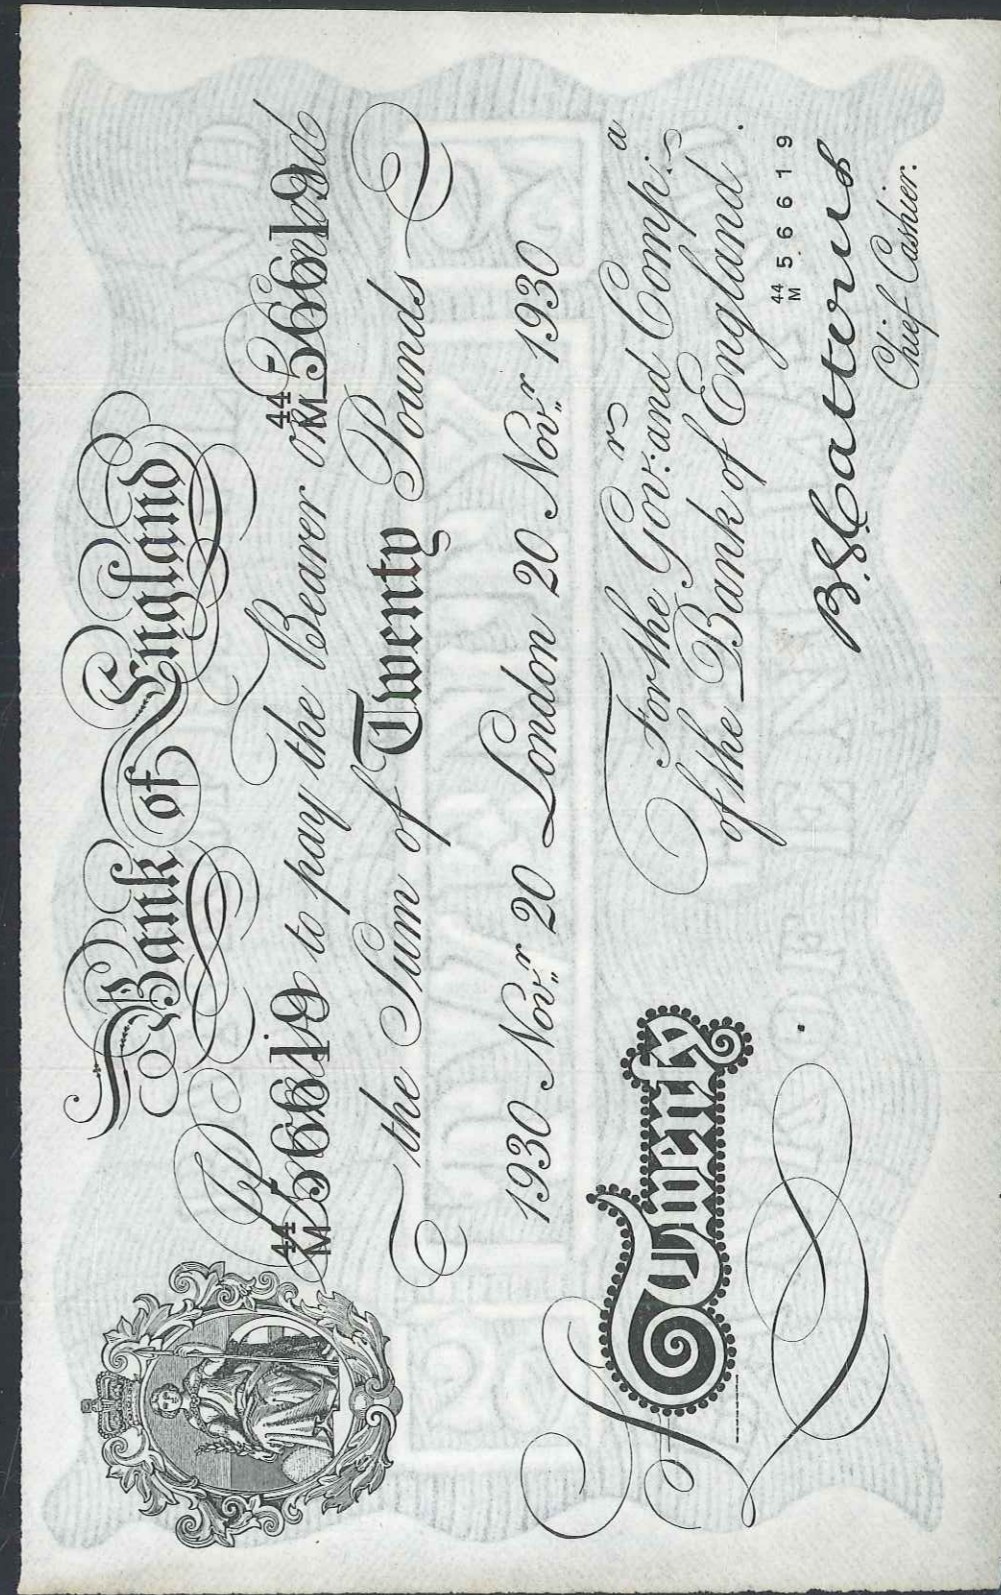 Bank of England
44
M 56619
I Promise to pay the Bearer on Demand
44
M 56619
the Sum of Twenty Pounds
1930 Nov.r 20 London 20 Nov.r 1930
For the Gov.rs and Comp.a
of the Bank of England.
44
M 56619
B.G.Catterns
Chief Cashier.
Twenty